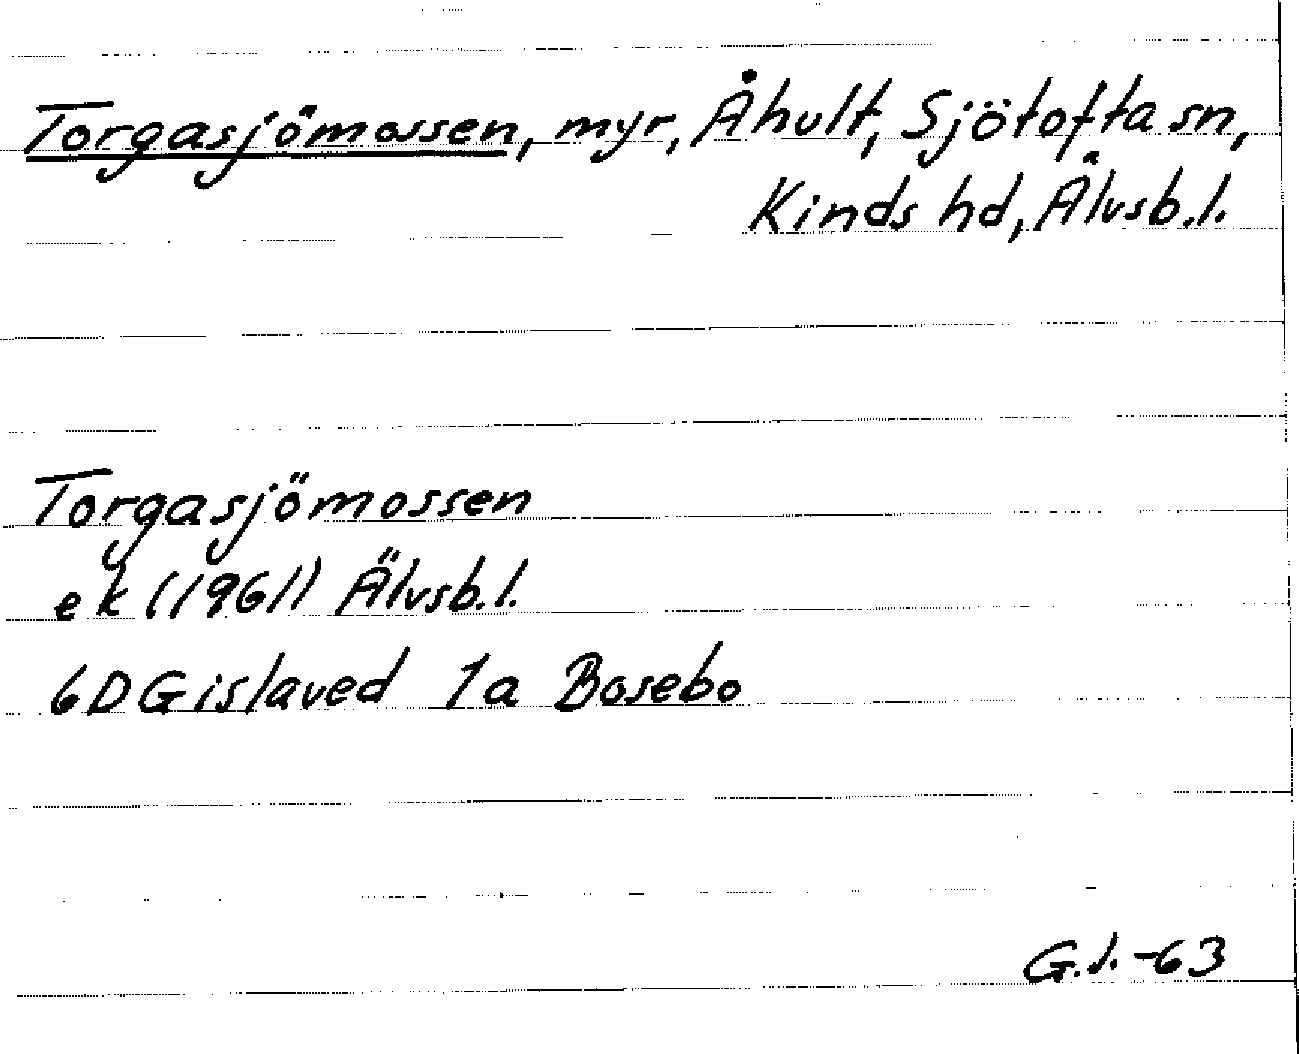 Torgasjömossen, myr, Åhult, Sjötofta sn,
Kinds hd, Älvsb.l.
Torgasjömossen
ek (1961) Älvsb.l.
6D Gislaved 1a Bosebo
G.l.-63